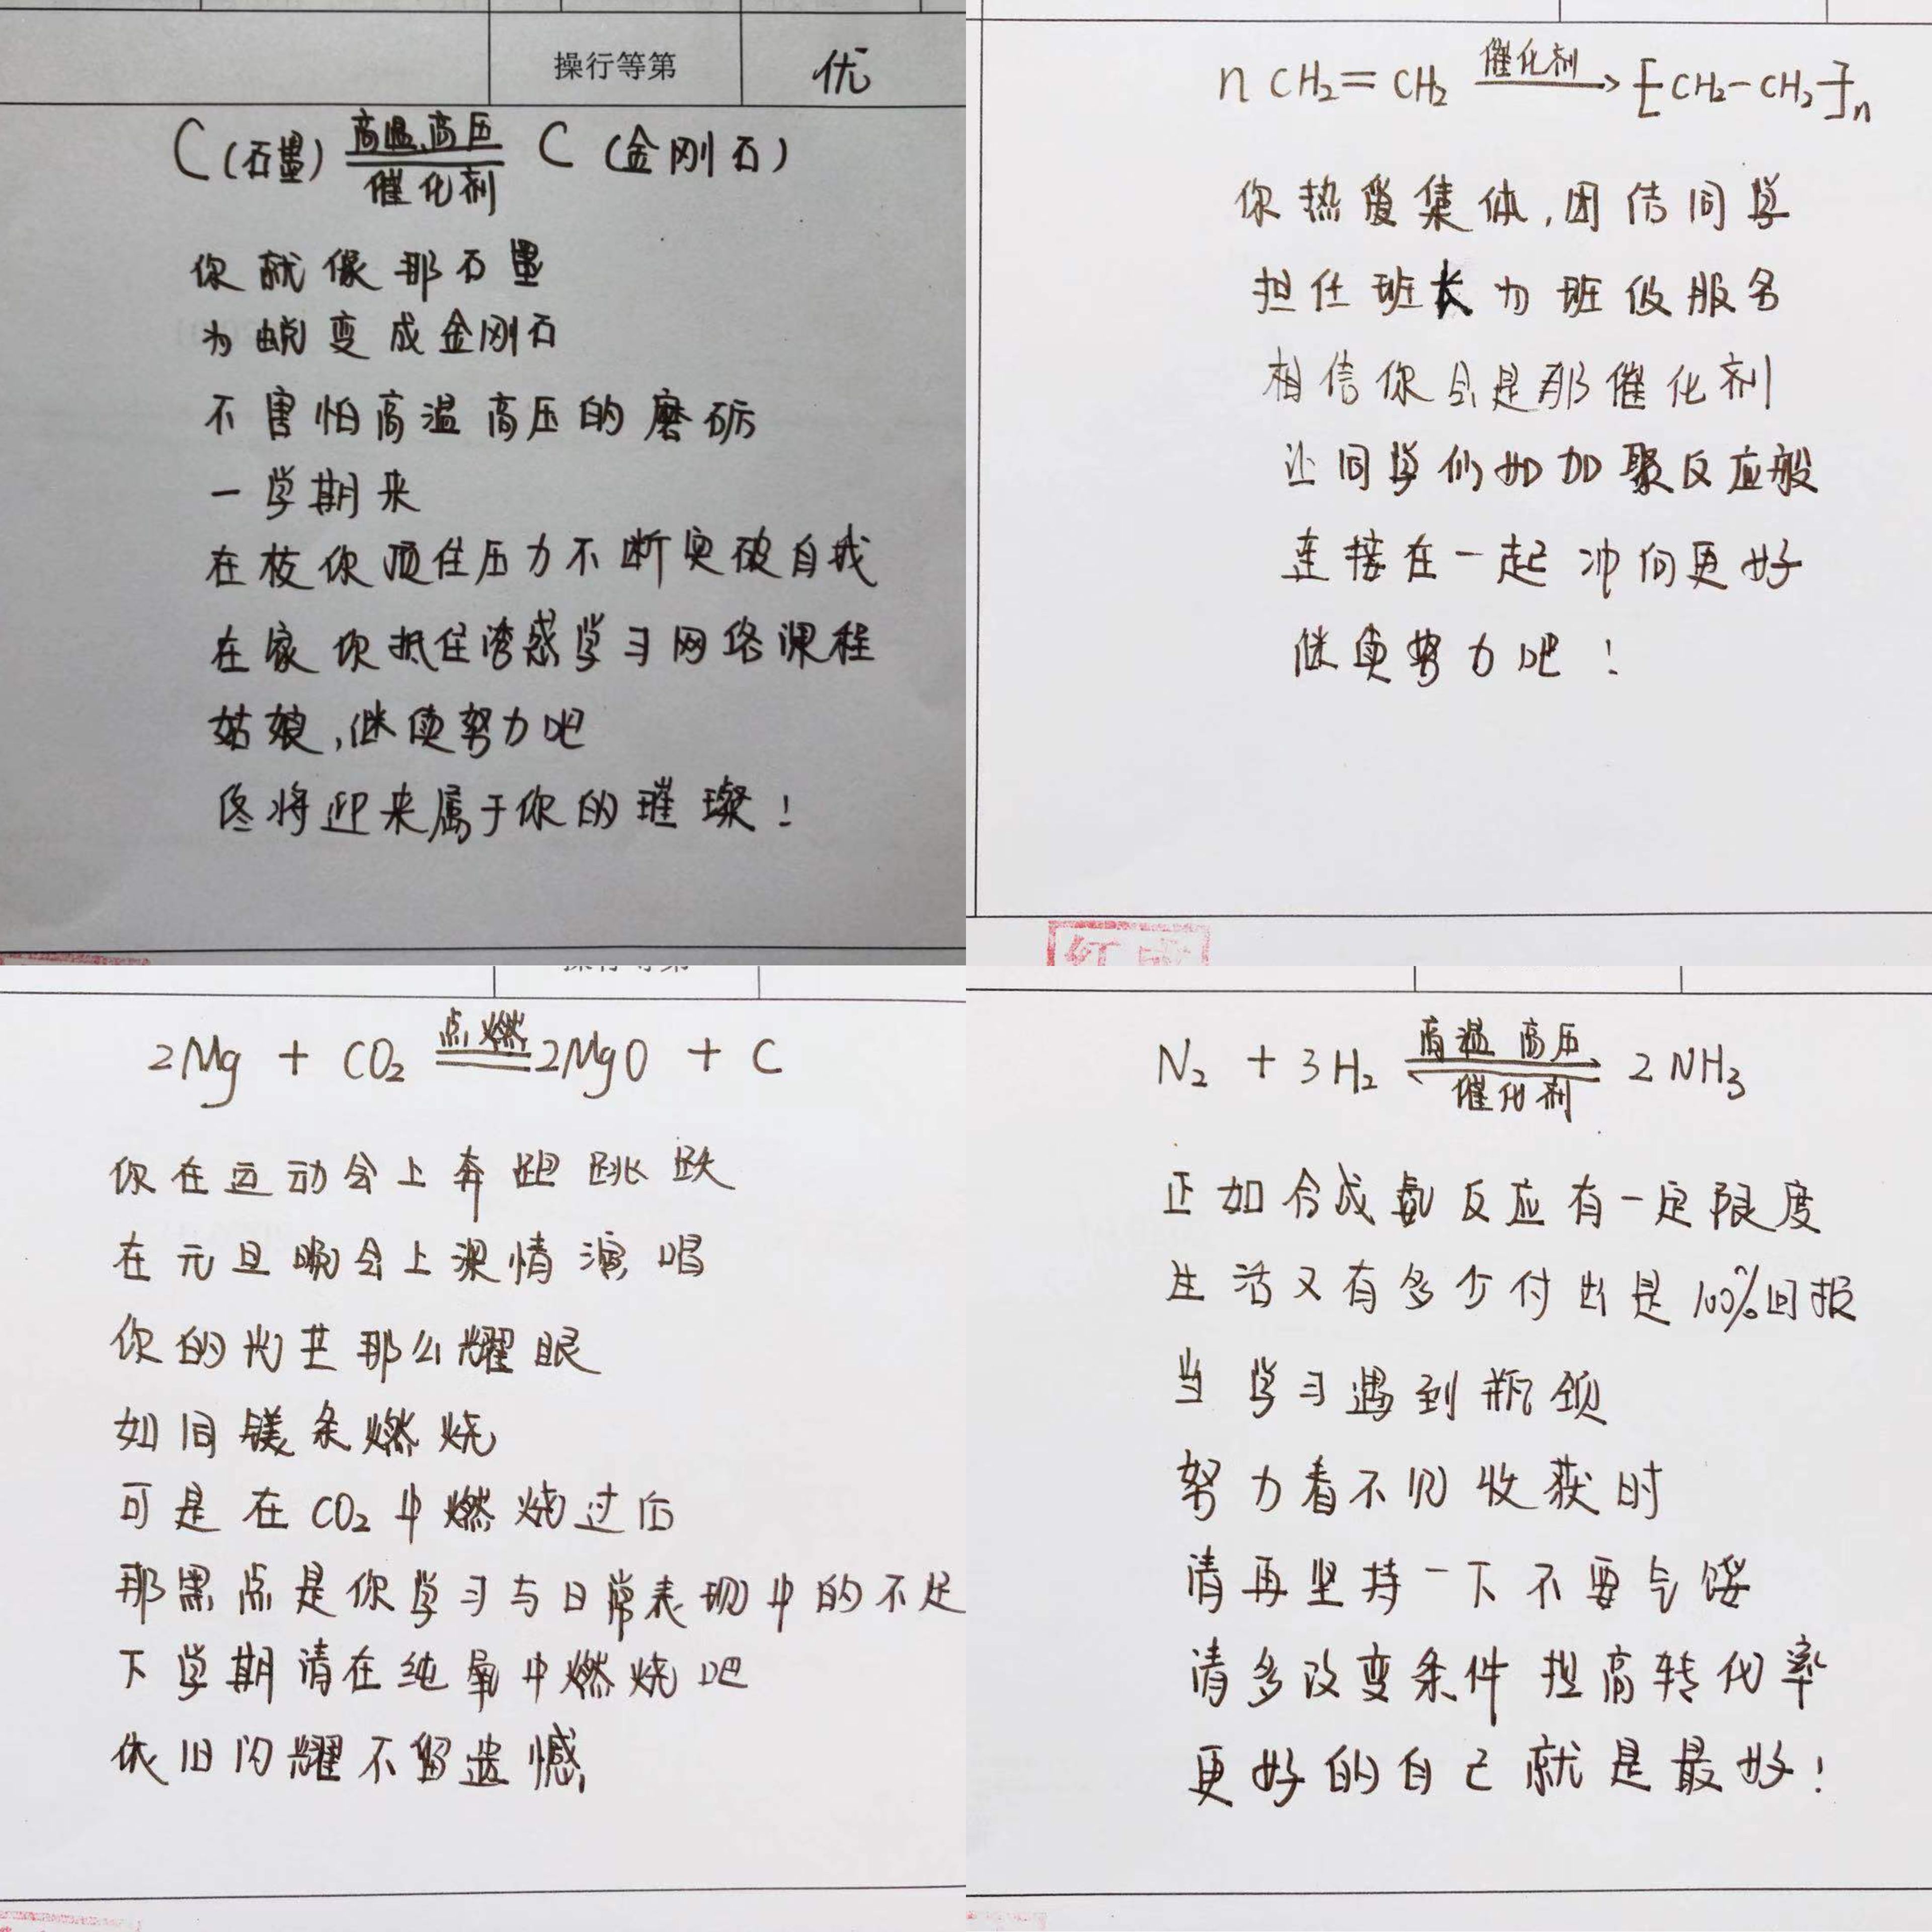 操行等第 优
C(石墨) 高温、高压 催化剂 C (金刚石)
你就像那石墨
为蜕变成金刚石
不害怕高温高压的磨砺
一学期来
在校你顶住压力不断突破自我
在家你抵住诱惑学习网络课程
姑娘,继续努力吧
终将迎来属于你的璀璨!
n CH₂=CH₂ 催化剂 → [CH₂-CH₂]n
你热爱集体,团结同学
担任班长为班级服务
相信你会是那催化剂
让同学们如加聚反应般
连接在一起冲向更好
继续努力吧!
2Mg + CO₂ 点燃 2MgO + C
你在运动会上奔跑跳跃
在元旦晚会上深情演唱
你的光芒那么耀眼
如同镁条燃烧
可是在CO₂中燃烧过后
那黑点是你学习与日常表现中的不足
下学期请在纯氧中燃烧吧
依旧闪耀不留遗憾
N₂ + 3H₂ 高温 高压 ⇌ 催化剂 2NH₃
正如合成氨反应有一定限度
生活又有多少付出是100%回报
当学习遇到瓶颈
努力看不见收获时
请再坚持一下不要气馁
请多改变条件提高转化率
更好的自己就是最好!